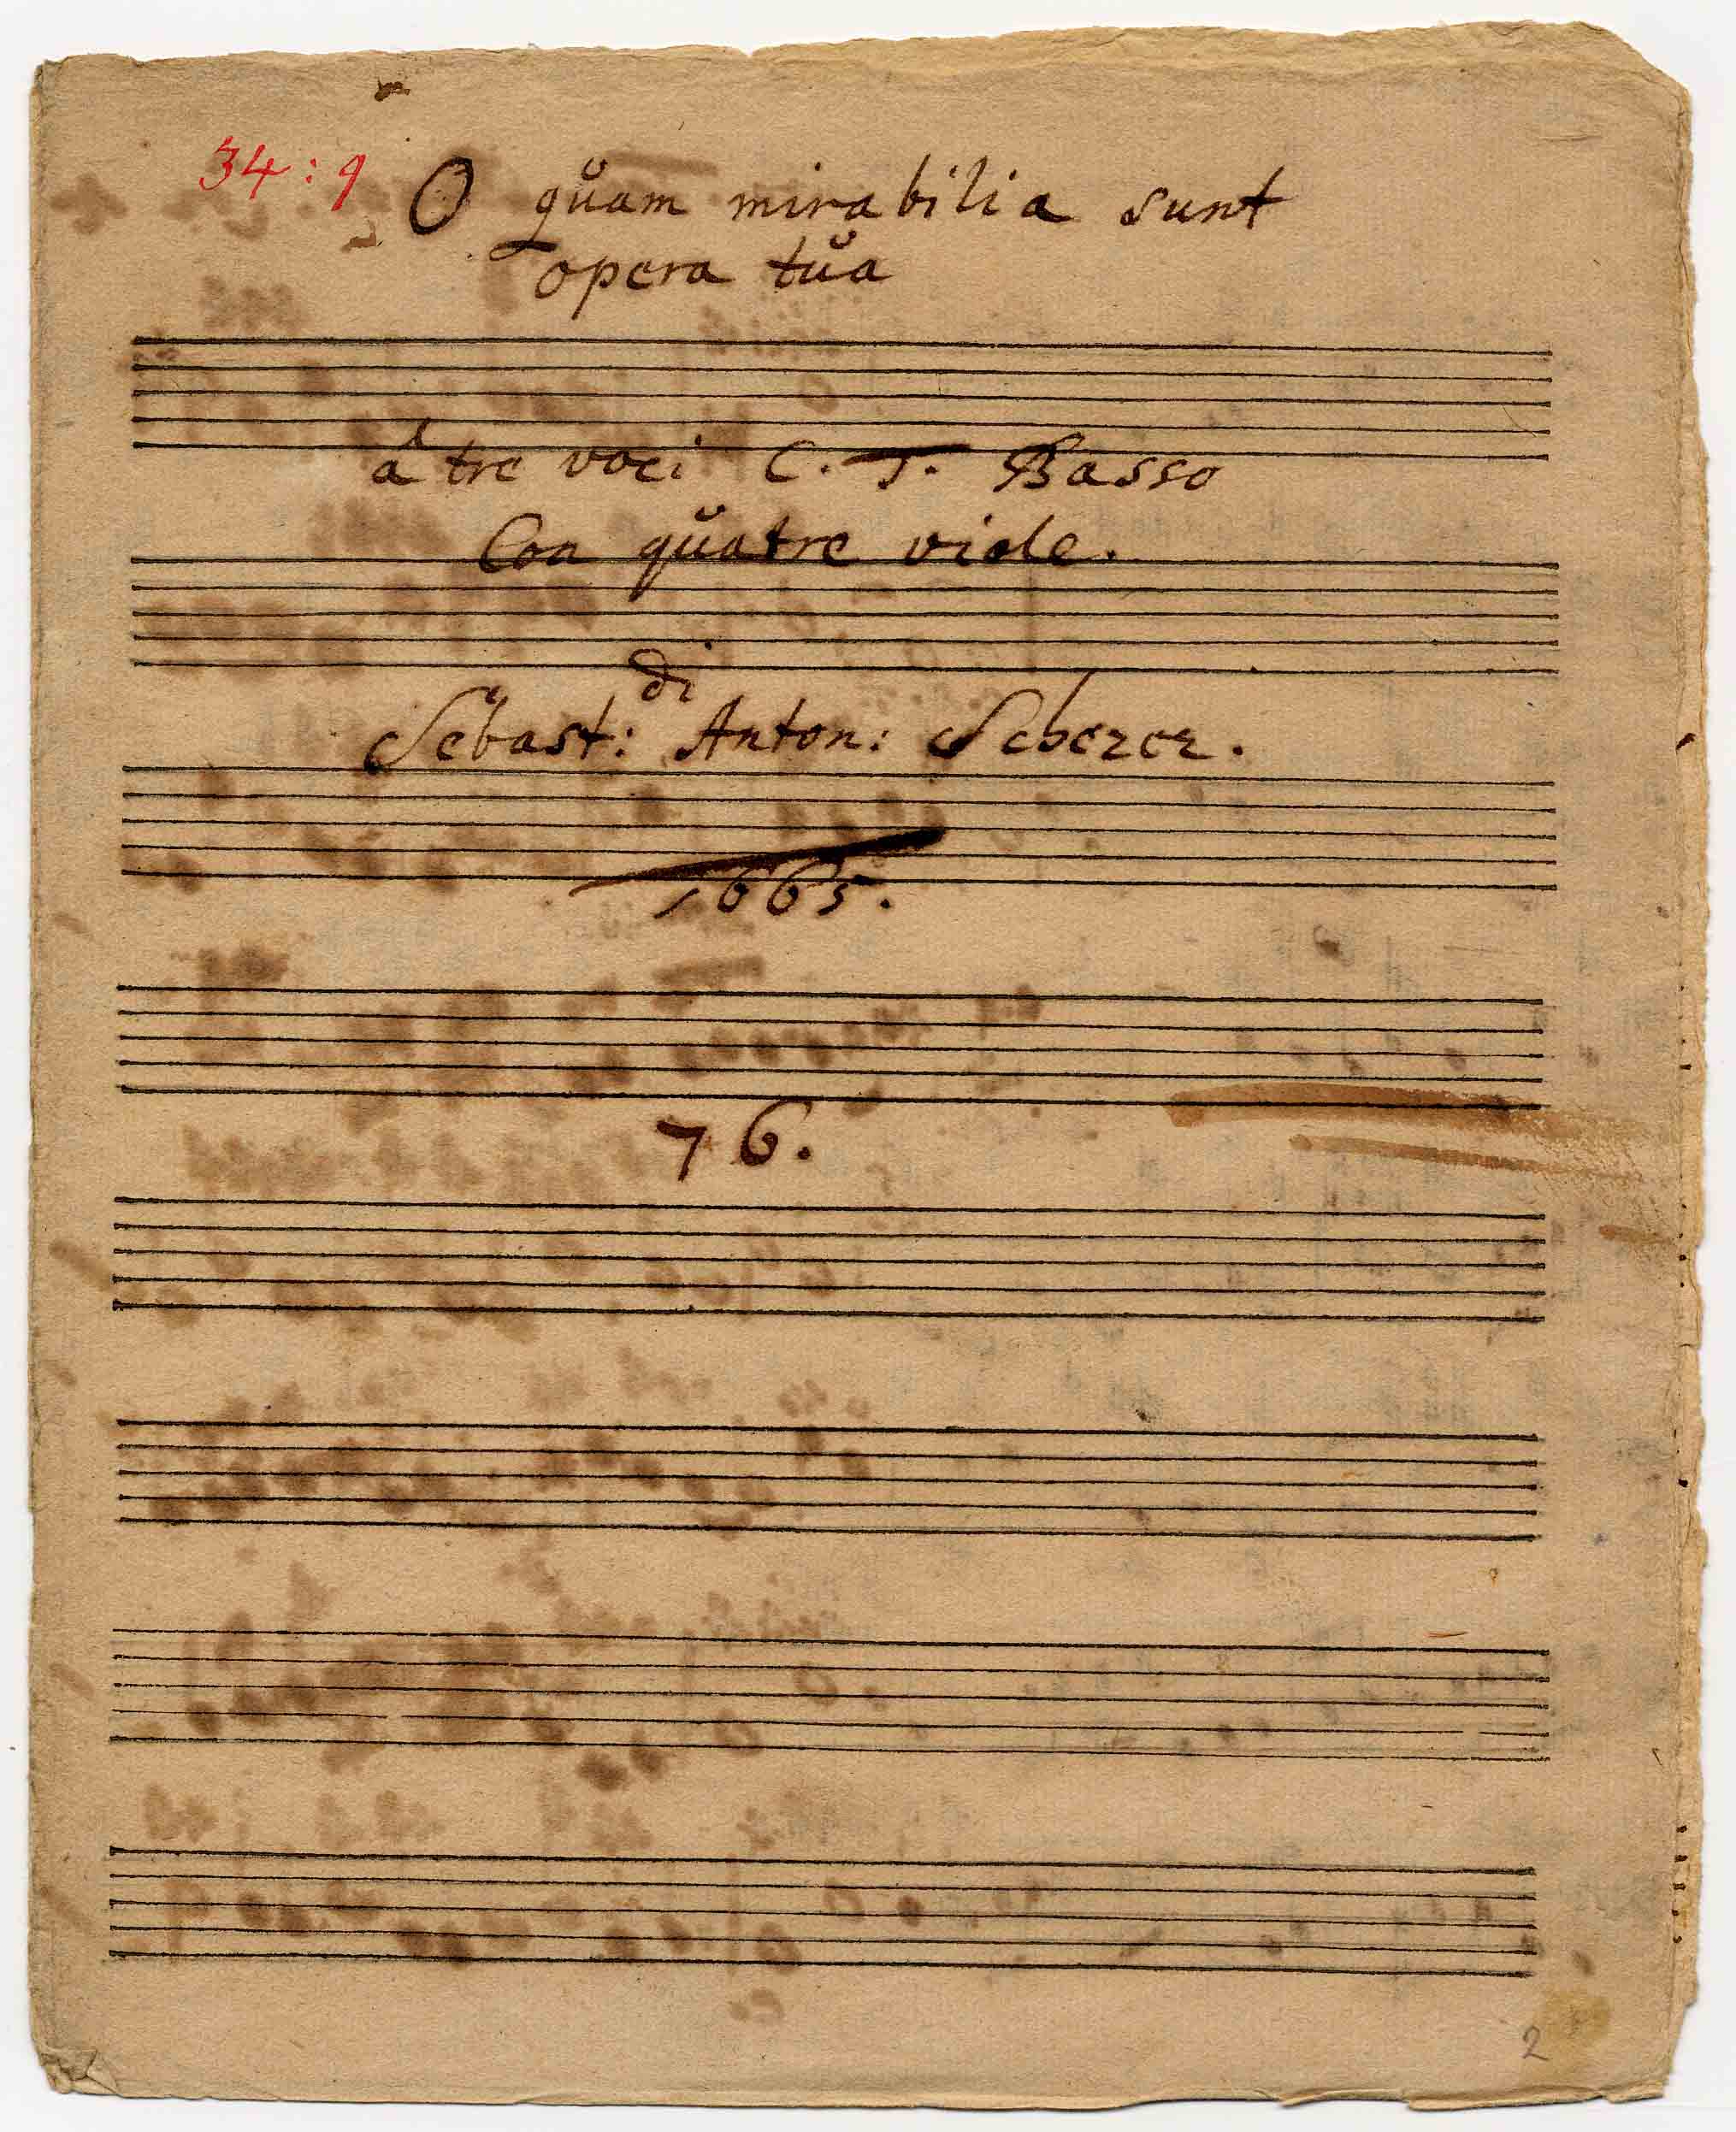 34 : 9
O quŭam mirabilia sunt
opera tŭa
â tre voci C. T. Basso
Con qŭatre viole.
di
Sebast: Anton: Scherer.
1665.
76.
2